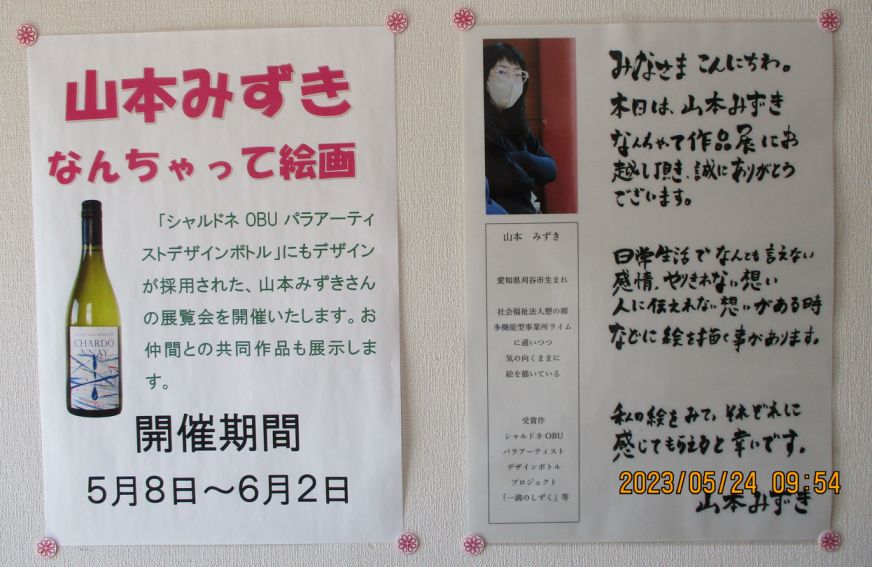 山本みずき
なんちゃって絵画
「シャルドネ OBU パラアーティ
ストデザインボトル」にもデザイン
が採用された、山本みずきさん
の展覧会を開催いたします。お
仲間との共同作品も展示しま
す。
CHARDO
NAY
開催期間
5月8日～6月2日
みなさま こんにちわ。
本日は、山本みずき
なんちゃって作品展にお
越し頂き、誠にありがとう
でざいます。
日常生活でなんとも言えない
感情、やりきれない想い
人に伝えれない想いがある時
などに絵を描く事があります。
私の絵をみて、それぞれに
感じてもらえると幸いです。
山本みずき
山本 みずき
愛知県刈谷市生まれ
社会福祉法人憩の郷
多機能型事業所ライム
に通いつつ
気の向くままに
絵を描いている
受賞作
シャルドネ OBU
パラアーティスト
デザインボトル
プロジェクト
「一滴のしずく」等
2023/05/24 09:54